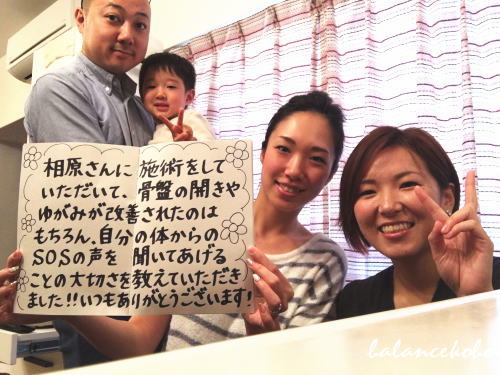 相原さんに 施術をして
いただいて、骨盤の開きや
ゆがみが改善されたのは
もちろん、自分の体からの
SOSの声を 聞いてあげる
ことの大切さを教えていただき
ました!!いつもありがとうございます!